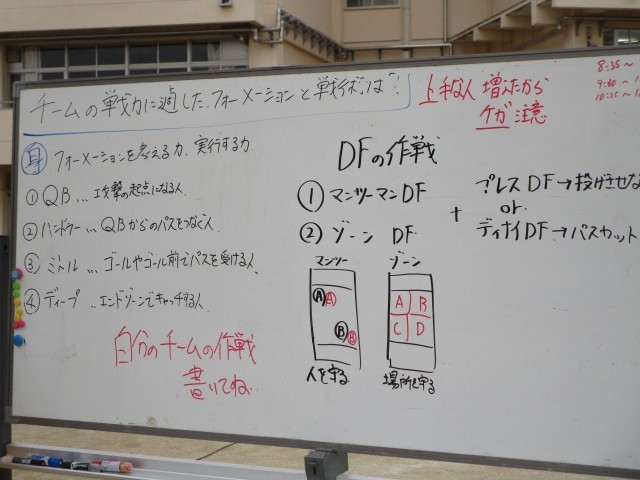 チームの戦力に適した、フォーメーションと戦術は?
上手な人増えたから
ケガ注意
8:35～
9:30～
10:25～
身 フォーメーションを考える力、実行する力
① QB … 攻撃の起点になる人。
② ハンドラー … QBからのパスをつなぐ人
③ ミドル … ゴールやゴール前でパスを受ける人、
④ ディープ … エンドゾーンでキャッチする人
自分のチームの作戦
書いてね
DFの作戦
① マンツーマンDF
② ゾーン DF
+
プレスDF→投げさせな
or
ディナイDF→パスカット
マンツー
ゾーン
A A
B B
A B
C D
人を守る
場所を守る